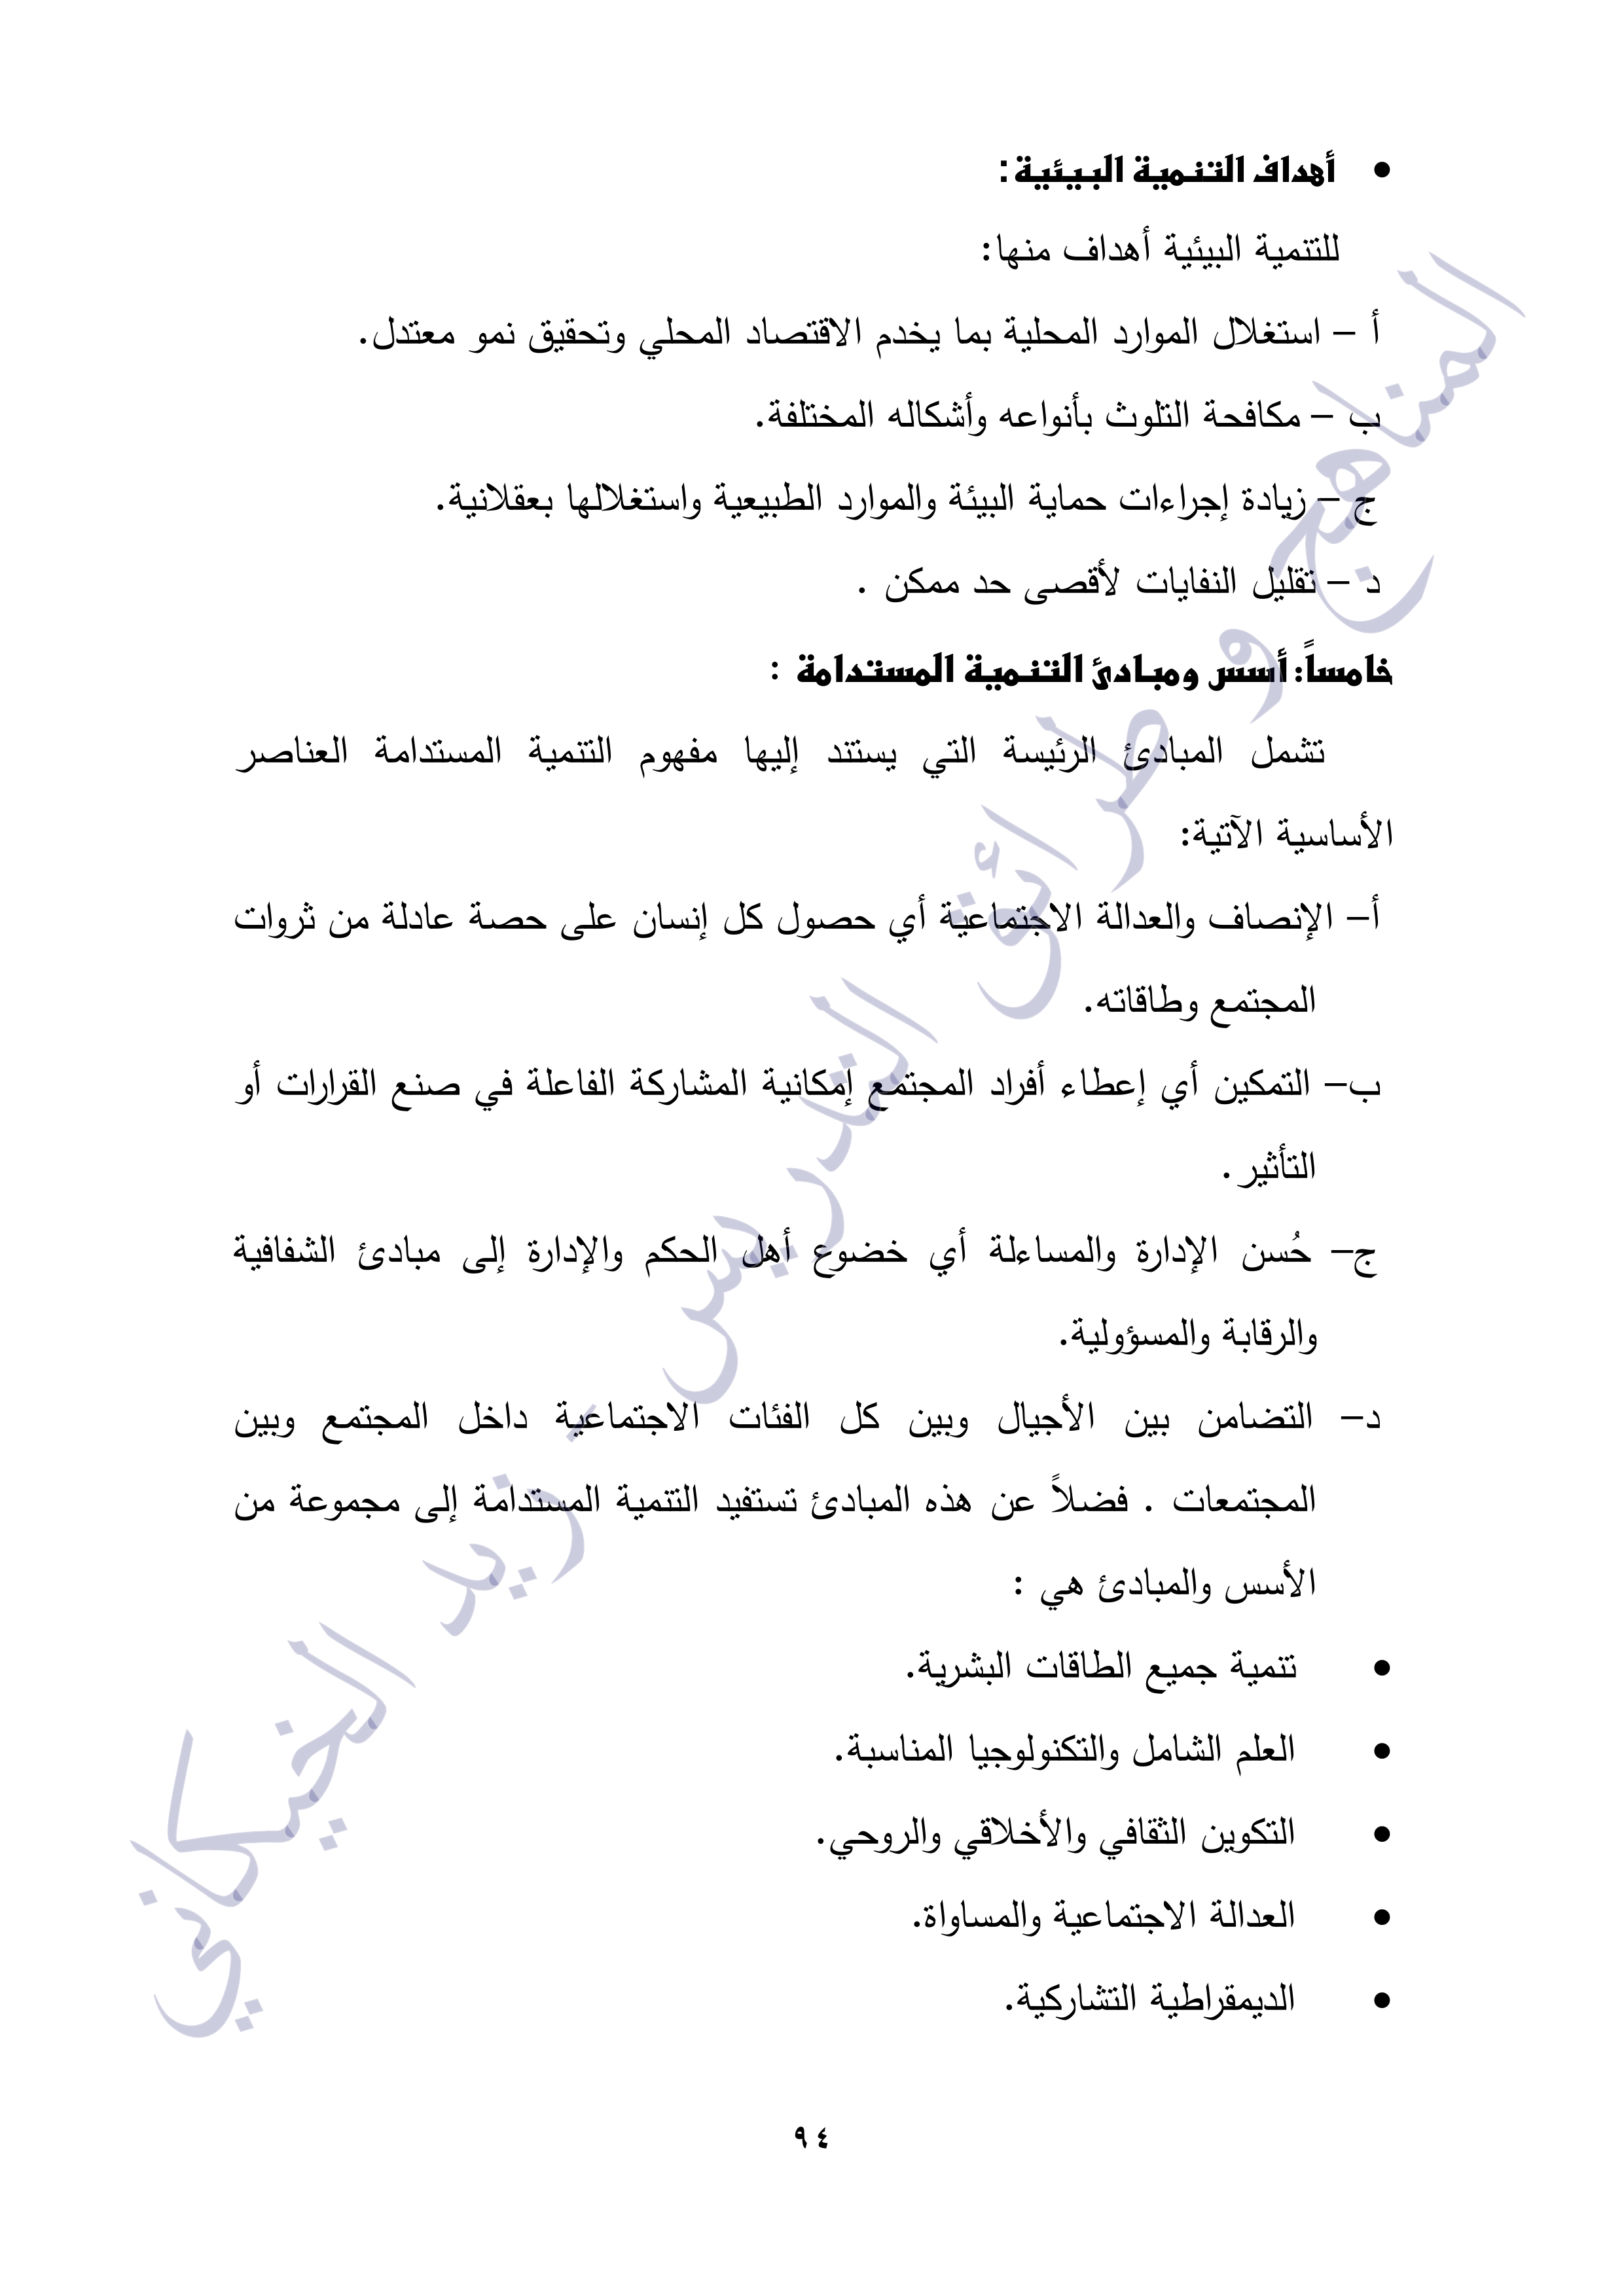 • أهداف التنمية البيئية:
للتنمية البيئية أهداف منها:
أ – استغلال الموارد المحلية بما يخدم الاقتصاد المحلي وتحقيق نمو معتدل.
ب – مكافحة التلوث بأنواعه وأشكاله المختلفة.
ج – زيادة إجراءات حماية البيئة والموارد الطبيعية واستغلالها بعقلانية.
د – تقليل النفايات لأقصى حد ممكن .
خامساً: أسس ومبادئ التنمية المستدامة :
تشمل المبادئ الرئيسة التي يستند إليها مفهوم التنمية المستدامة العناصر
الأساسية الآتية:
أ– الإنصاف والعدالة الاجتماعية أي حصول كل إنسان على حصة عادلة من ثروات
المجتمع وطاقاته.
ب– التمكين أي إعطاء أفراد المجتمع إمكانية المشاركة الفاعلة في صنع القرارات أو
التأثير .
ج– حُسن الإدارة والمساءلة أي خضوع أهل الحكم والإدارة إلى مبادئ الشفافية
والرقابة والمسؤولية.
د– التضامن بين الأجيال وبين كل الفئات الاجتماعية داخل المجتمع وبين
المجتمعات . فضلاً عن هذه المبادئ تستفيد التنمية المستدامة إلى مجموعة من
الأسس والمبادئ هي :
• تنمية جميع الطاقات البشرية.
• العلم الشامل والتكنولوجيا المناسبة.
• التكوين الثقافي والأخلاقي والروحي.
• العدالة الاجتماعية والمساواة.
• الديمقراطية التشاركية.
٩٤
المناهج و طرائق التدريس - زيد الخيكاني